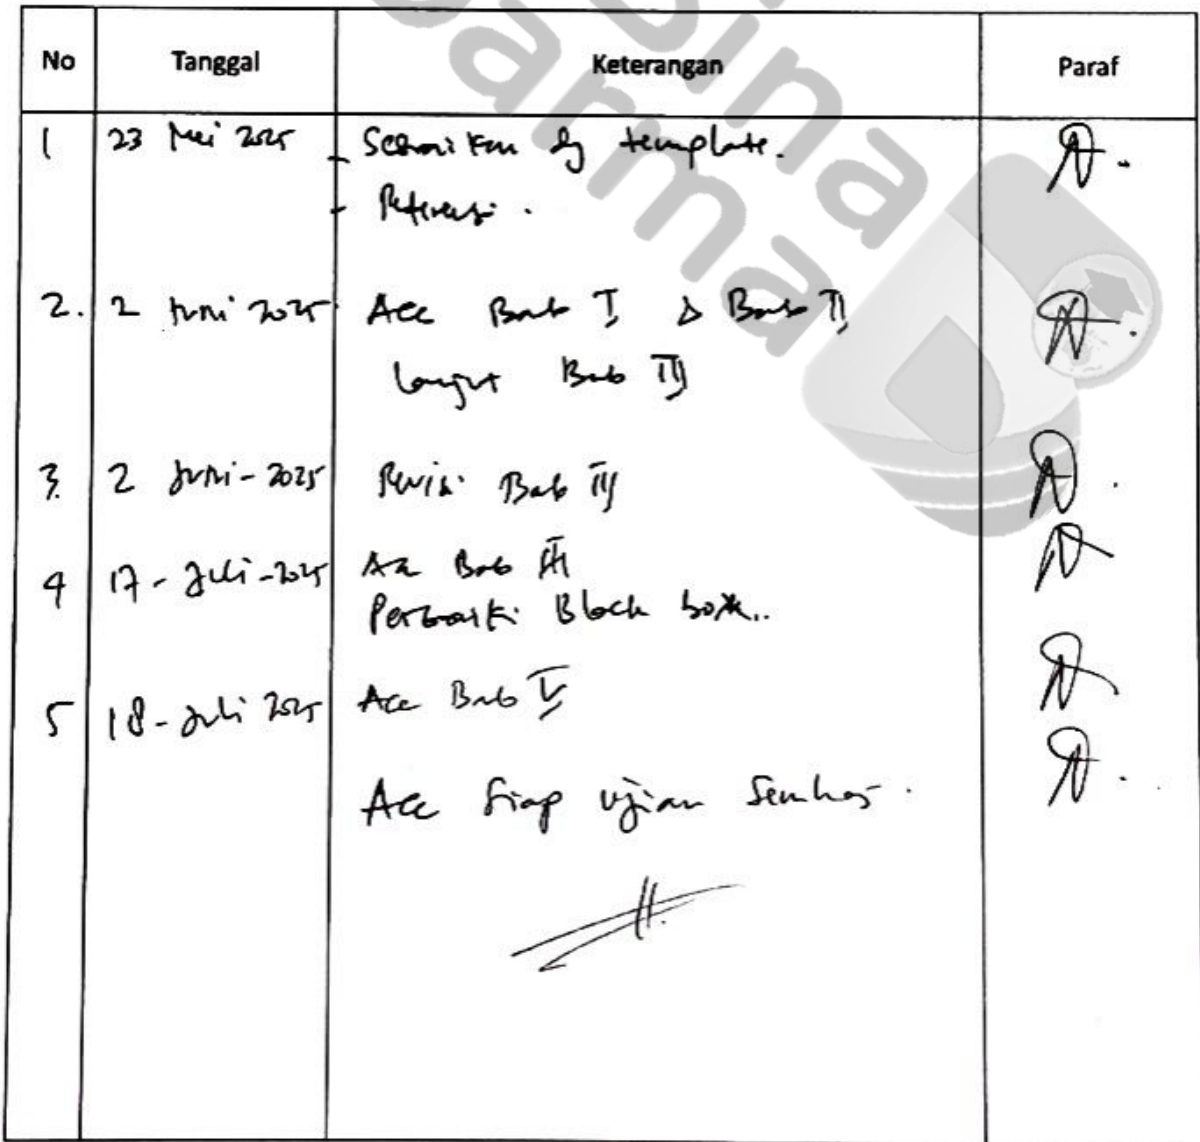 No Tanggal Keterangan Paraf
1 23 Mei 2025 - Sesuaikan dg template.
- Referensi.
2. 2 Juni 2025 Acc Bab I & Bab II
lanjut Bab III
3. 2 Juni-2025 Revisi Bab III
4 17-Juli-2025 Acc Bab III
Perbaiki Block box..
5 18-Juli 2025 Acc Bab V
Acc Siap Ujian Semhas.
Bina
Darma